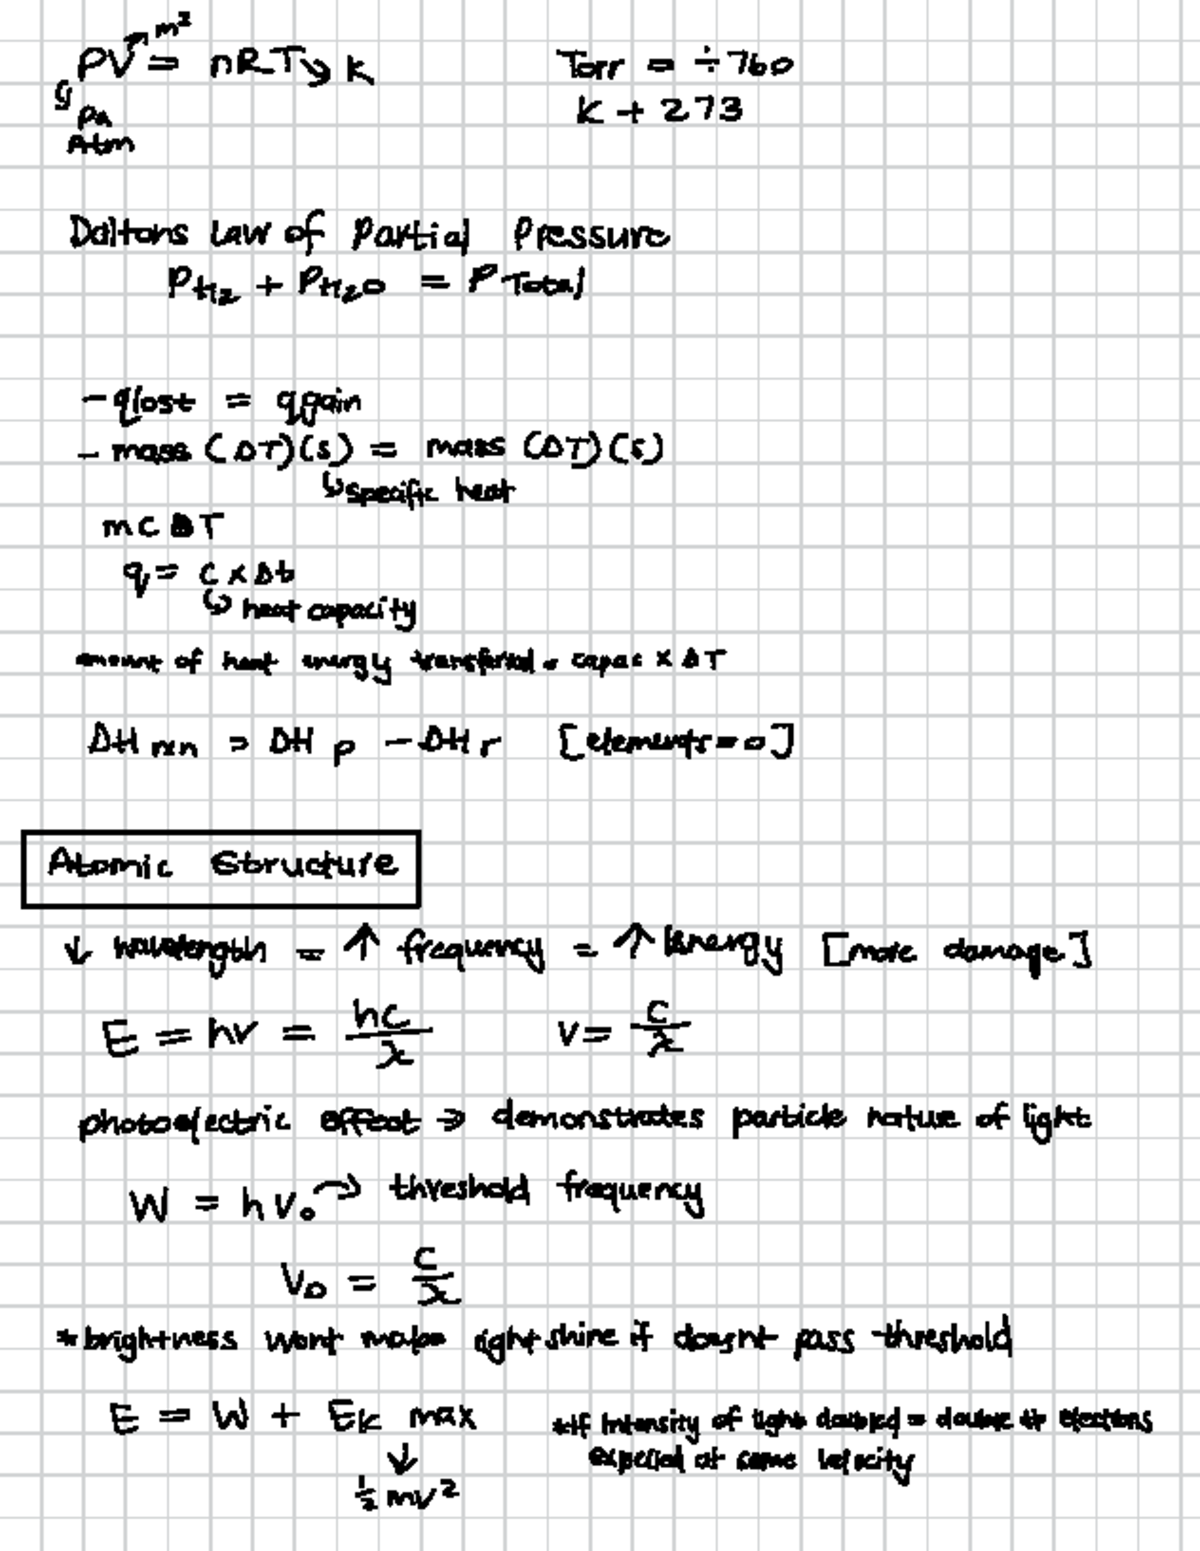 PV = nRT → K
m³
Pa
Atm
Torr = ÷760
K + 273
Daltons Law of Partial Pressure
P H₂ + P H₂O = P Total
- qlost = qgain
- mass (ΔT)(s) = mass (ΔT)(s)
↳ specific heat
mCΔT
q = C x Δt
↳ heat capacity
amount of heat energy transferred = capac x ΔT
ΔH rxn = ΔH p - ΔH r [elements = 0]
Atomic Structure
↓ wavelength = ↑ frequency = ↑ energy [more damage]
E = hv = hc/λ v = c/λ
photoelectric effect → demonstrates particle nature of light
W = hv₀ → threshold frequency
V₀ = c/λ
*brightness wont make light shine if doesnt pass threshold
E = W + Ek max
↓
½ mv²
*If Intensity of light doubled = double # electrons
expelled at same velocity